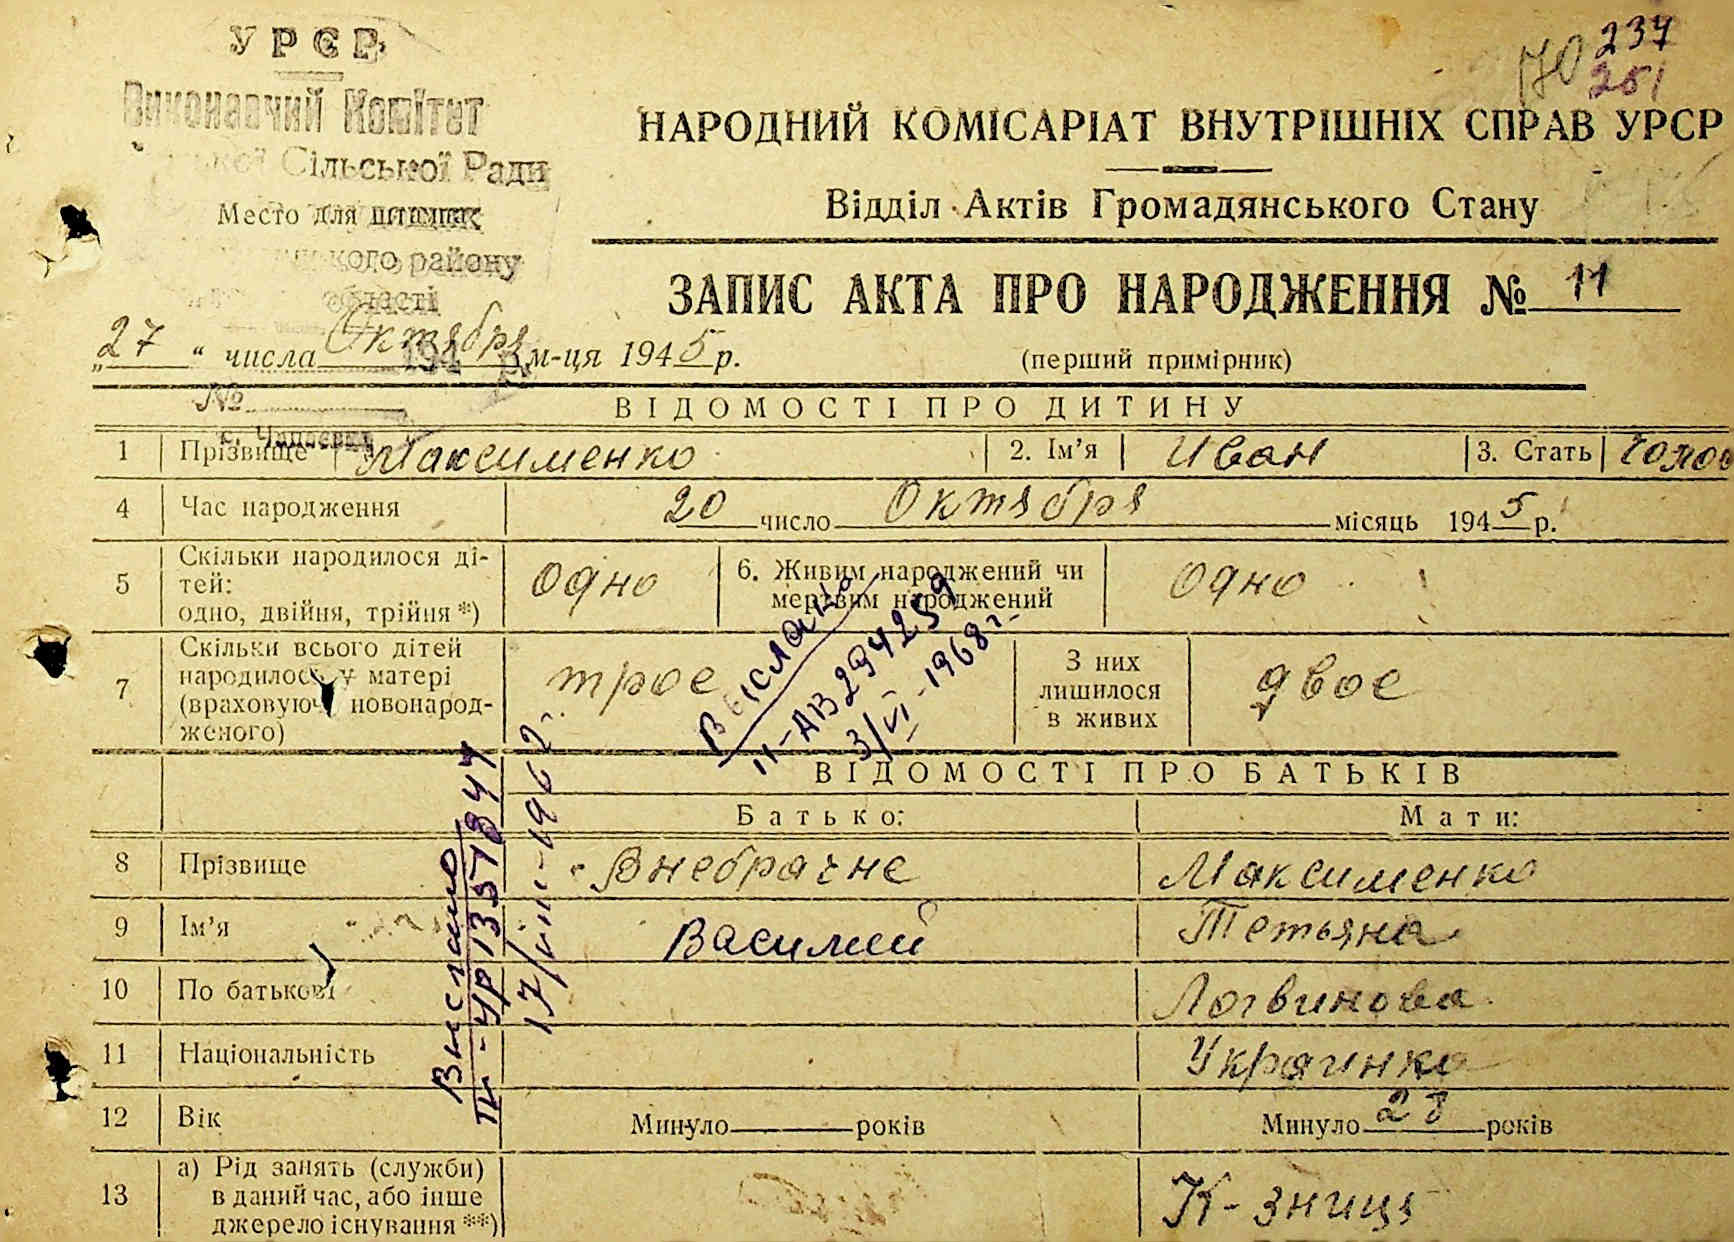 УРСР
237
70
251
Виконавчий Комітет
Сільської Ради
Место для штампа
району
області
НАРОДНИЙ КОМІСАРІАТ ВНУТРІШНІХ СПРАВ УРСР
Відділ Актів Громадянського Стану
ЗАПИС АКТА ПРО НАРОДЖЕННЯ № 11
„27“ числа Октября м-ця 1945 р.
(перший примірник)
№
ВІДОМОСТІ ПРО ДИТИНУ
1 Прізвище Максименко 2. Ім’я Иван 3. Стать
4 Час народження 20 число Октября місяць 1945 р.
5 Скільки народилося ді-
тей:
одно, двійня, трійня *)
одно
6. Живим народжений чи
мертвим народжений
одно
7 Скільки всього дітей
народилось у матері
(враховуючи новонарод-
женого)
трое
З них
лишилося
в живих
двое
Выслано
II-АВ 294259
3/VI-1968 г.
Выслано
17/VIII-1962 г.
ВІДОМОСТІ ПРО БАТЬКІВ
Батько: Мати:
8 Прізвище Внебрачне Максименко
9 Ім’я Василий Тетьяна
10 По батькові Логвинова
11 Національність Украинка
12 Вік Минуло років Минуло 28 років
13 а) Рід занять (служби)
в даний час, або інше
джерело існування **)
К-зниця